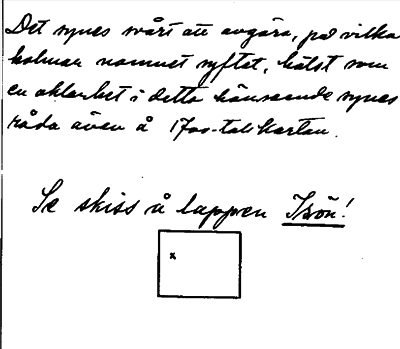 Det synes svårt att avgöra, på vilka
holmar namnet syftat, hälst som
en oklarhet i detta hänseende synes
råda även å 1700-tals kartan.
Se skiss å lappen Isön!
x